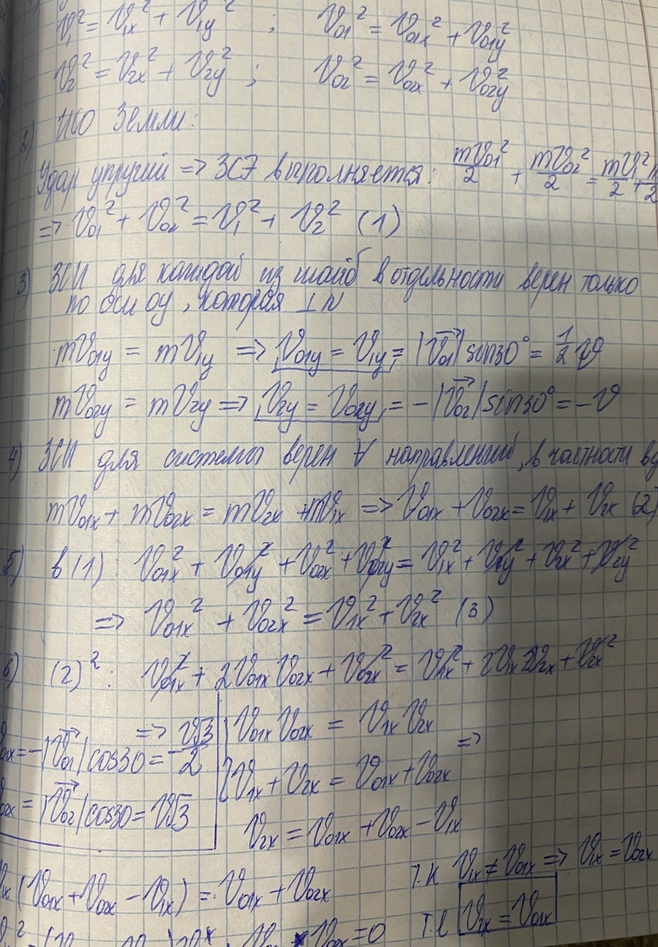 V₁² = V₁ₓ² + V₁y² ; V₀₁² = V₀₁ₓ² + V₀₁y²
V₂² = V₂ₓ² + V₂y² ; V₀₂² = V₀₂ₓ² + V₀₂y²
2) ИСО Земли:
Удар упругий => ЗСЭ выполняется: mV₀₁²/2 + mV₀₂²/2 = mV₁²/2 +
=> V₀₁² + V₀₂² = V₁² + V₂² (1)
3) ЗСИ для каждой из шайб в отдельности верен только
по оси оy, которая ⊥ N
mV₀₁y = mV₁y => V₀₁y = V₁y = |V₀₁| sin30° = 1/2 V
mV₀₂y = mV₂y => V₂y = V₀₂y = -|V₀₂| sin30° = -V
4) ЗСИ для системы верен ∀ направлений, в частности
mV₀₁ₓ + mV₀₂ₓ = mV₂ₓ + mV₁ₓ => V₀₁ₓ + V₀₂ₓ = V₁ₓ + V₂ₓ (2)
5) в (1) V₀₁ₓ² + V₀₁y² + V₀₂ₓ² + V₀₂y² = V₁ₓ² + V₁y² + V₂ₓ² + V₂y²
=> V₀₁ₓ² + V₀₂ₓ² = V₁ₓ² + V₂ₓ² (3)
6) (2)²: V₀₁ₓ² + 2V₀₁ₓV₀₂ₓ + V₀₂ₓ² = V₁ₓ² + 2V₁ₓV₂ₓ + V₂ₓ²
=> { V₀₁ₓV₀₂ₓ = V₁ₓV₂ₓ
V₁ₓ + V₂ₓ = V₀₁ₓ + V₀₂ₓ =>
₀₁ₓ = -|V₀₁| cos30 = -V√3/2
₀₂ₓ = |V₀₂| cos30 = V√3
V₂ₓ = V₀₁ₓ + V₀₂ₓ - V₁ₓ
V₁ₓ (V₀₁ₓ + V₀₂ₓ - V₁ₓ) = V₀₁ₓ + V₀₂ₓ
т.к V₁ₓ ≠ V₀₁ₓ => V₁ₓ = V₀₂ₓ
т.е V₂ₓ = V₀₁ₓ